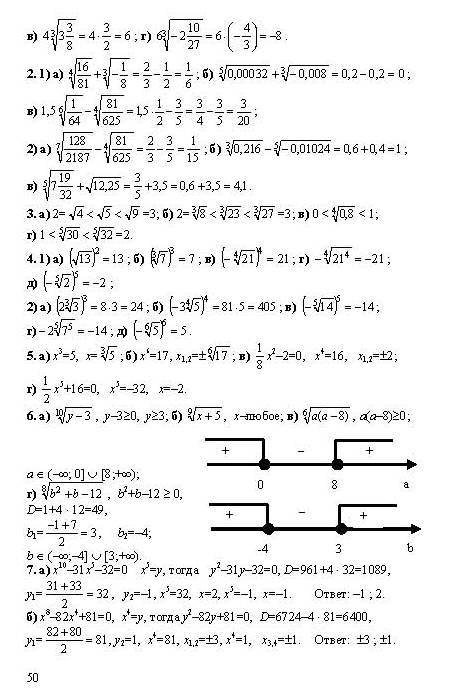 в) 4∛(3 3/8) = 4·3/2 = 6 ; г) 6∛(−2 10/27) = 6·(−4/3) = −8 .
2. 1) а) ∜(16/81) + ∛(−1/8) = 2/3 − 1/2 = 1/6 ; б) ⁵√0,00032 + ∛−0,008 = 0,2−0,2 = 0 ;
в) 1,5 ⁶√(1/64) − ∜(81/625) = 1,5·1/2 − 3/5 = 3/4 − 3/5 = 3/20 ;
2) а) ⁷√(128/2187) − ∜(81/625) = 2/3 − 3/5 = 1/15 ; б) ∛0,216 − ⁵√−0,01024 = 0,6+0,4 = 1 ;
в) ⁵√(7 19/32) + √12,25 = 3/5 + 3,5 = 0,6+3,5 = 4,1 .
3. а) 2= √4 < √5 < √9 =3; б) 2= ∛8 < ∛23 < ∛27 =3; в) 0 < ∜0,8 < 1;
г) 1 < ⁵√30 < ⁵√32 =2.
4. 1) а) (√13)² = 13 ; б) (∛7)³ = 7 ; в) (−∜21)⁴ = 21 ; г) −∜21⁴ = −21 ;
д) (−⁵√2)⁵ = −2 ;
2) а) (2∛3)³ = 8·3 = 24 ; б) (−3∜5)⁴ = 81·5 = 405 ; в) (−⁵√14)⁵ = −14 ;
г) −2⁵√7⁵ = −14 ; д) (−⁶√5)⁶ = 5 .
5. а) x³=5, x= ∛5 ; б) x⁴=17, x₁,₂=±∜17 ; в) 1/8 x²−2=0, x⁴=16, x₁,₂=±2;
г) 1/2 x⁵+16=0, x⁵=−32, x=−2.
6. а) ¹⁰√(y−3) , y−3≥0, y≥3; б) ⁹√(x+5) , x−любое; в) ⁶√(a(a−8)) , a(a−8)≥0 ;
+ − +
0 8 a
a ∈ (−∞; 0] ∪ [8 ;+∞);
г) ⁸√(b²+b−12) , b²+b−12 ≥ 0,
D=1+4 · 12=49,
b₁= (−1+7)/2 = 3 , b₂=−4;
b ∈ (−∞;−4] ∪ [3;+∞).
+ − +
-4 3 b
7. а) x¹⁰−31x⁵−32=0 x⁵=y, тогда y²−31y−32=0, D=961+4 · 32=1089,
y₁= (31+33)/2 = 32 , y₂=−1, x⁵=32, x=2, x⁵=−1, x=−1. Ответ: −1 ; 2.
б) x⁸−82x⁴+81=0, x⁴=y, тогда y²−82y+81=0, D=6724−4 · 81=6400,
y₁= (82+80)/2 = 81, y₂=1, x⁴=81, x₁,₂=±3, x⁴=1, x₃,₄=±1. Ответ: ±3 ; ±1.
50